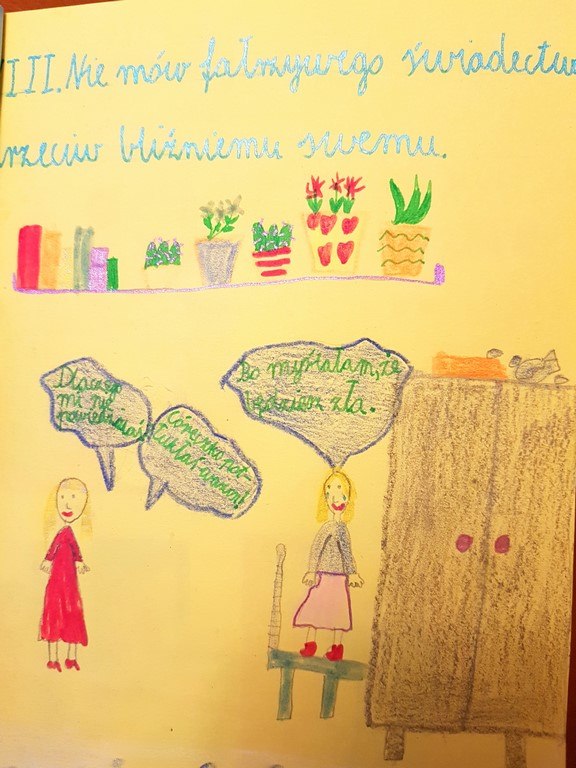 VIII. Nie mów fałszywego świadectwa
rzeciw bliźniemu swemu.
Dlaczego
mi nie
powiedziałaś!
Córeczko pot-
łukłaś wazon!
Bo myślałam, że
będziesz zła.